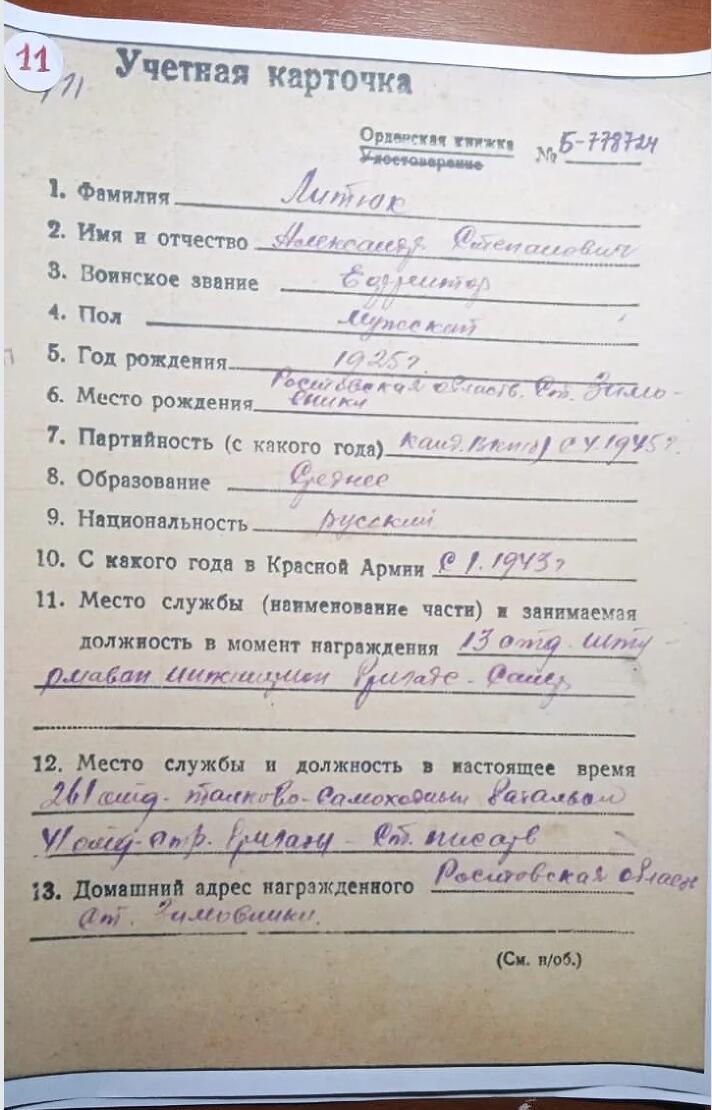 11
Учетная карточка
Орденская книжка
Удостоверение
№ Б-778724
1. Фамилия Литюк
2. Имя и отчество Александр Степанович
3. Воинское звание Ефрейтор
4. Пол Мужской
5. Год рождения 1925г.
Ростовская область. Ст. Зимо-
6. Место рождения вники
7. Партийность (с какого года) канд. вкп(б) с V.1945г.
8. Образование Среднее
9. Национальность русский
10. С какого года в Красной Армии С I.1943г
11. Место службы (наименование части) и занимаемая
должность в момент награждения 13 отд. шту-
рмовая бригаде - Сапер
12. Место службы и должность в настоящее время
261 отд. танково-самоходный батальон
41 отд. стр. бригады - Ст. писарь
13. Домашний адрес награжденного Ростовская область
ст. Зимовники.
(См. н/об.)